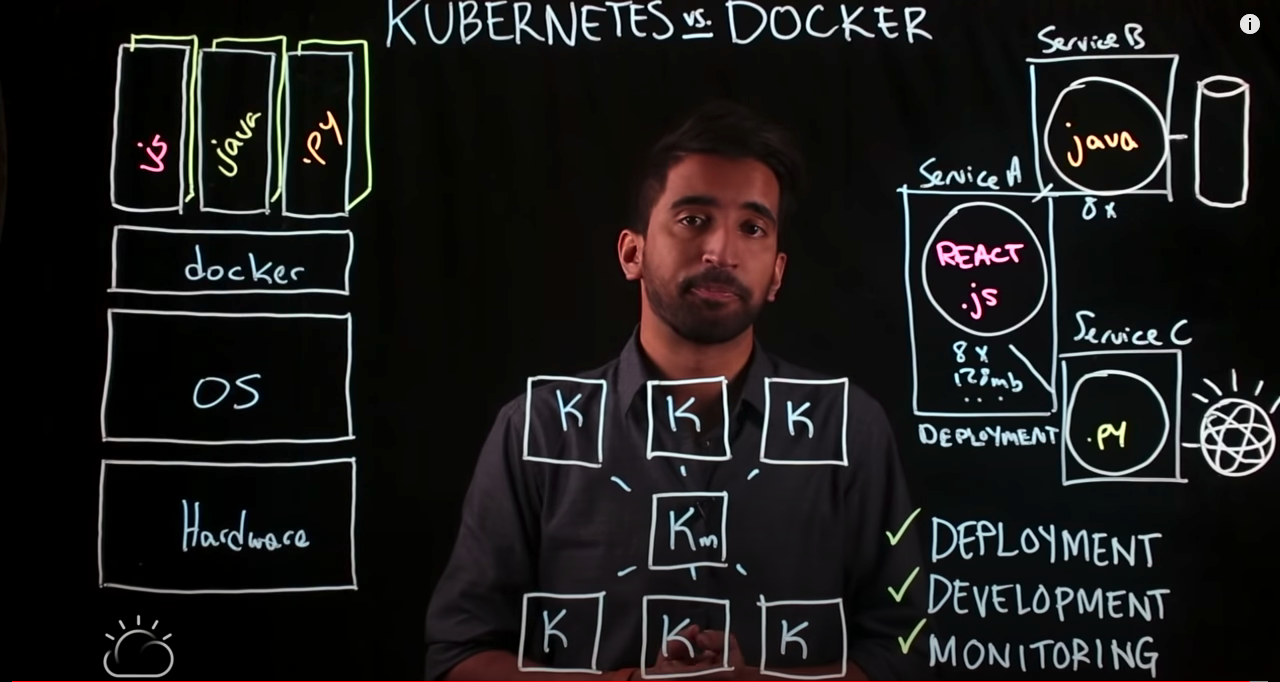 KUBERNETES vs. DOCKER
.js
java
.py
docker
OS
Hardware
K
K
K
Km
K
K
K
Service B
java
8x
Service A
REACT
.js
8x
128mb
...
DEPLOYMENT
Service C
.py
✓ DEPLOYMENT
✓ DEVELOPMENT
✓ MONITORING
i